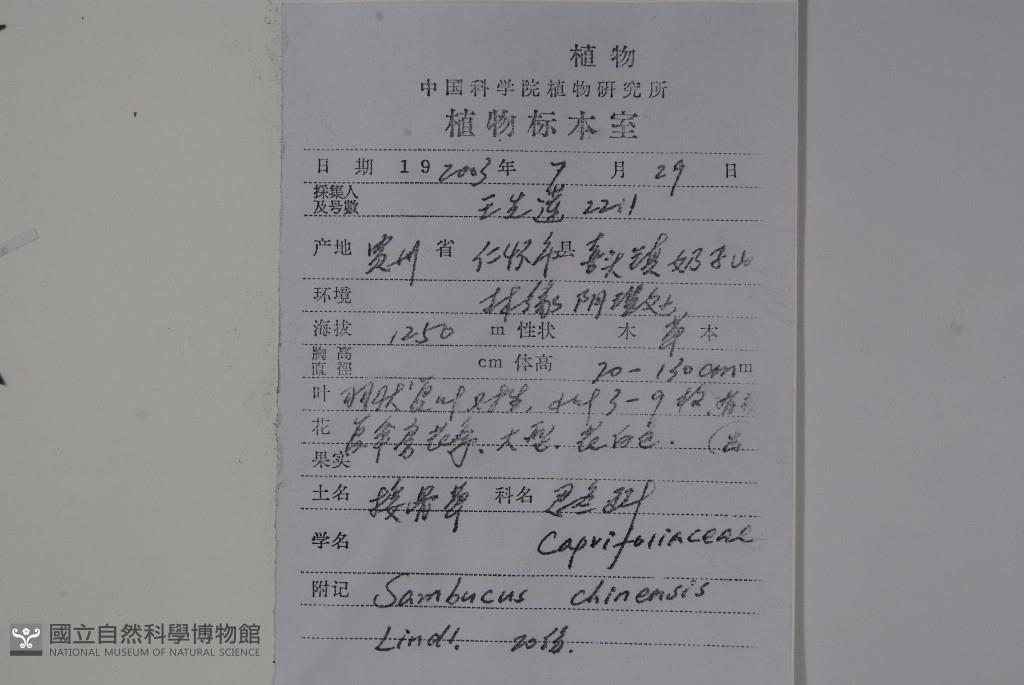 植物
中国科学院植物研究所
植物标本室
日期 19 2003年 7 月 29 日
採集人及号數 王先莲 2211
产地 贵州 省 仁怀市县 喜头镇奶子山
环境 林缘阴湿处
海拔 1250 m 性状 木 草 本
胸高直徑 cm 体高 20-130cm m
叶 羽状复叶对生, 小叶3-9枚,
花 复伞房花序、大型、花白色.
果实
土名 接骨草 科名 忍冬科
学名 Caprifoliaceae
附记 Sambucus chinensis
Lindl. 20份.
國立自然科學博物館
NATIONAL MUSEUM OF NATURAL SCIENCE